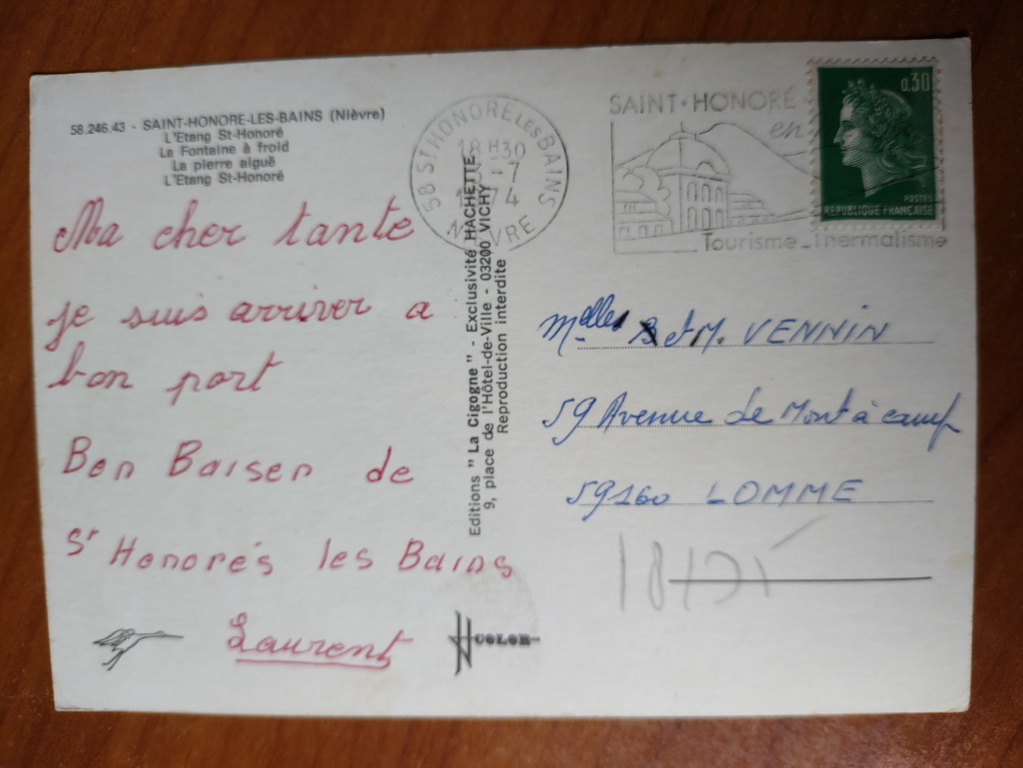 58.246.43 - SAINT-HONORE-LES-BAINS (Nièvre)
L'Etang St-Honoré
La Fontaine à froid
La pierre aiguë
L'Etang St-Honoré
Ma cher tante
je suis arriver a
bon port
Bon Baiser de
St Honorés les Bains
Laurent
Editions " La Cigogne " - Exclusivité HACHETTE
9, place de l'Hôtel-de-Ville - 03200 VICHY
Reproduction interdite
COLOR
58 ST HONORE LES BAINS
18H30
-7
1974
NIEVRE
SAINT-HONORÉ
en
Tourisme - Thermalisme
0,30
POSTES
REPUBLIQUE FRANÇAISE
Melles B et M. VENNIN
59 Avenue de Mont à camp
59160 LOMME